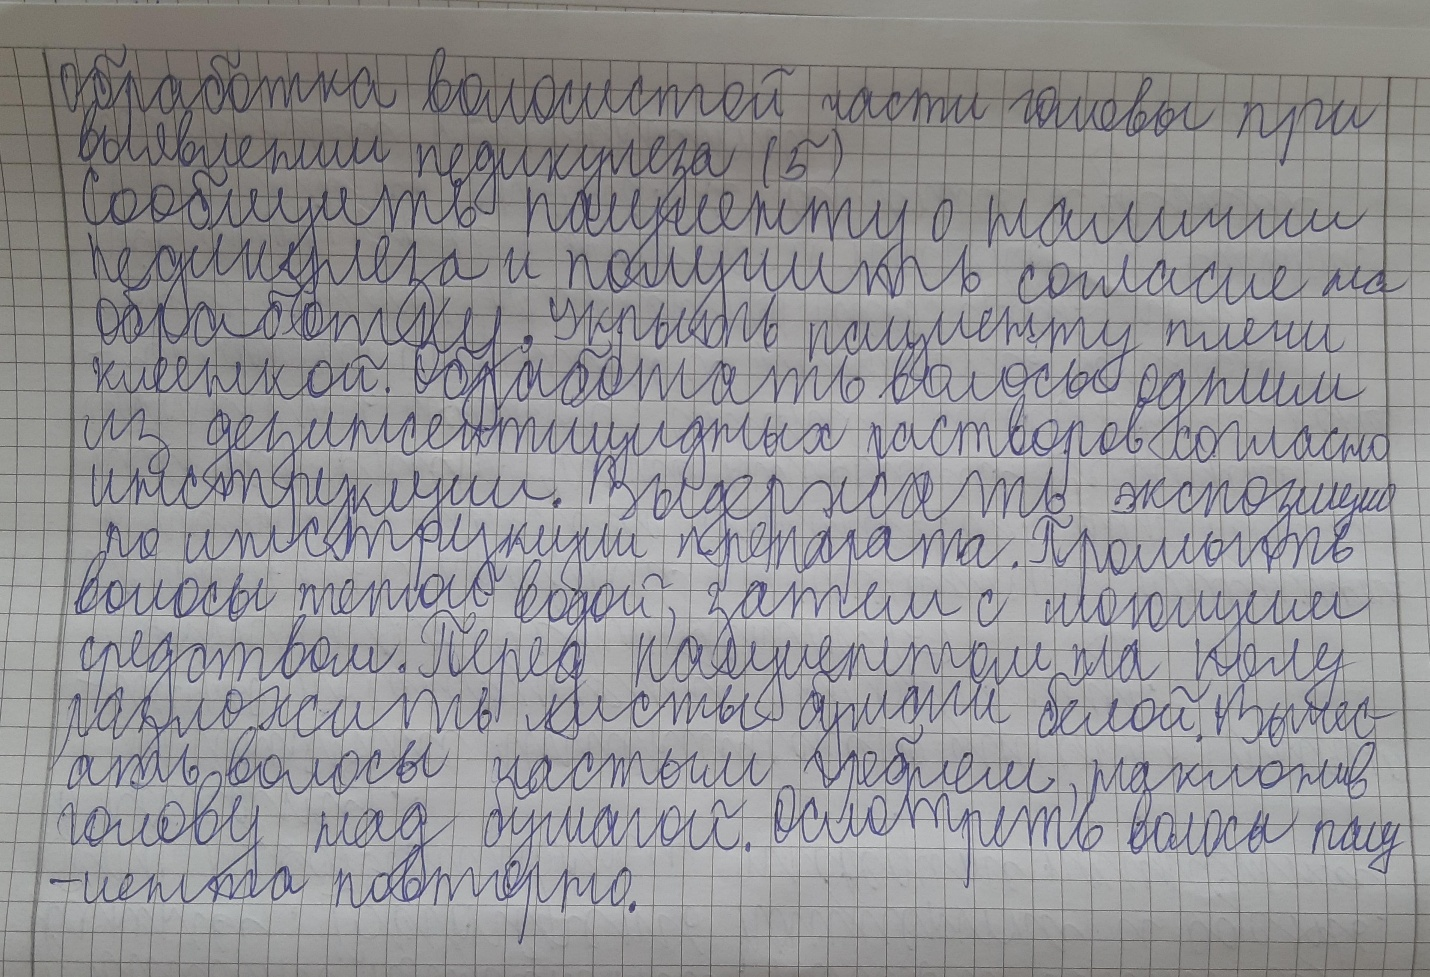 Обработка волосистой части головы при
выявлении педикулеза (5)
Сообщить пациенту о наличии
педикулеза и получить согласие на
обработку. Укрыть пациенту плечи
клеенкой. Обработать волосы одним
из дезинсектицидных растворов согласно
инструкции. Выдержать экспозицию
по инструкции препарата. Промыть
волосы теплой водой, затем с моющим
средством. Перед пациентом на полу
разложить листы бумаги белой. Вычес-
ать волосы частым гребнем, наклонив
голову над бумагой. Осмотреть волосы паци
-иента повторно.